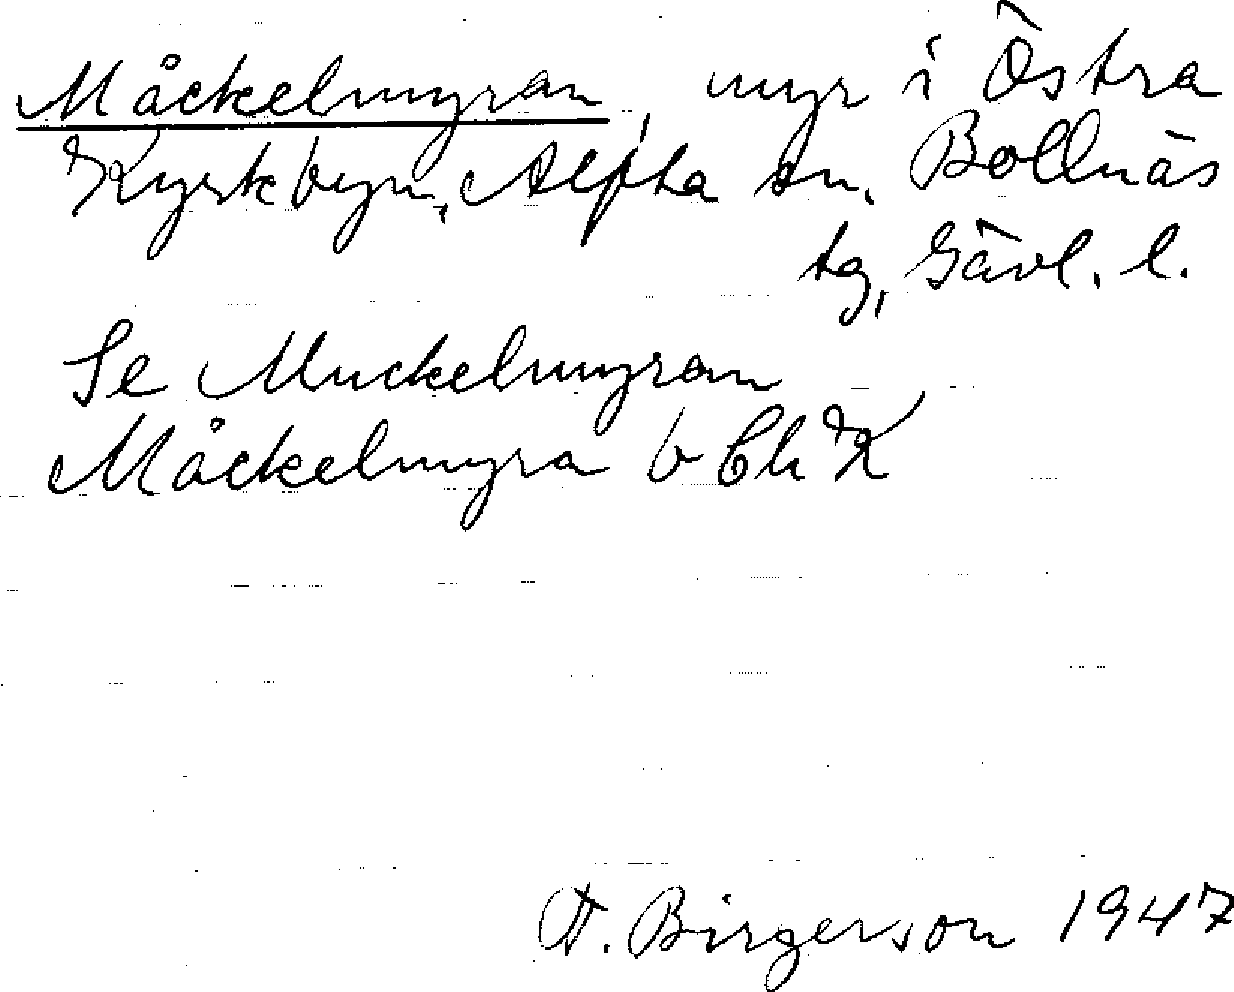 Måckelmyran, myr i Östra
Kyrkbyn, Alfta sn. Bollnäs
tg, Gävl. l.
Se Muckelmyran
Måckelmyra
Birgerson 1947